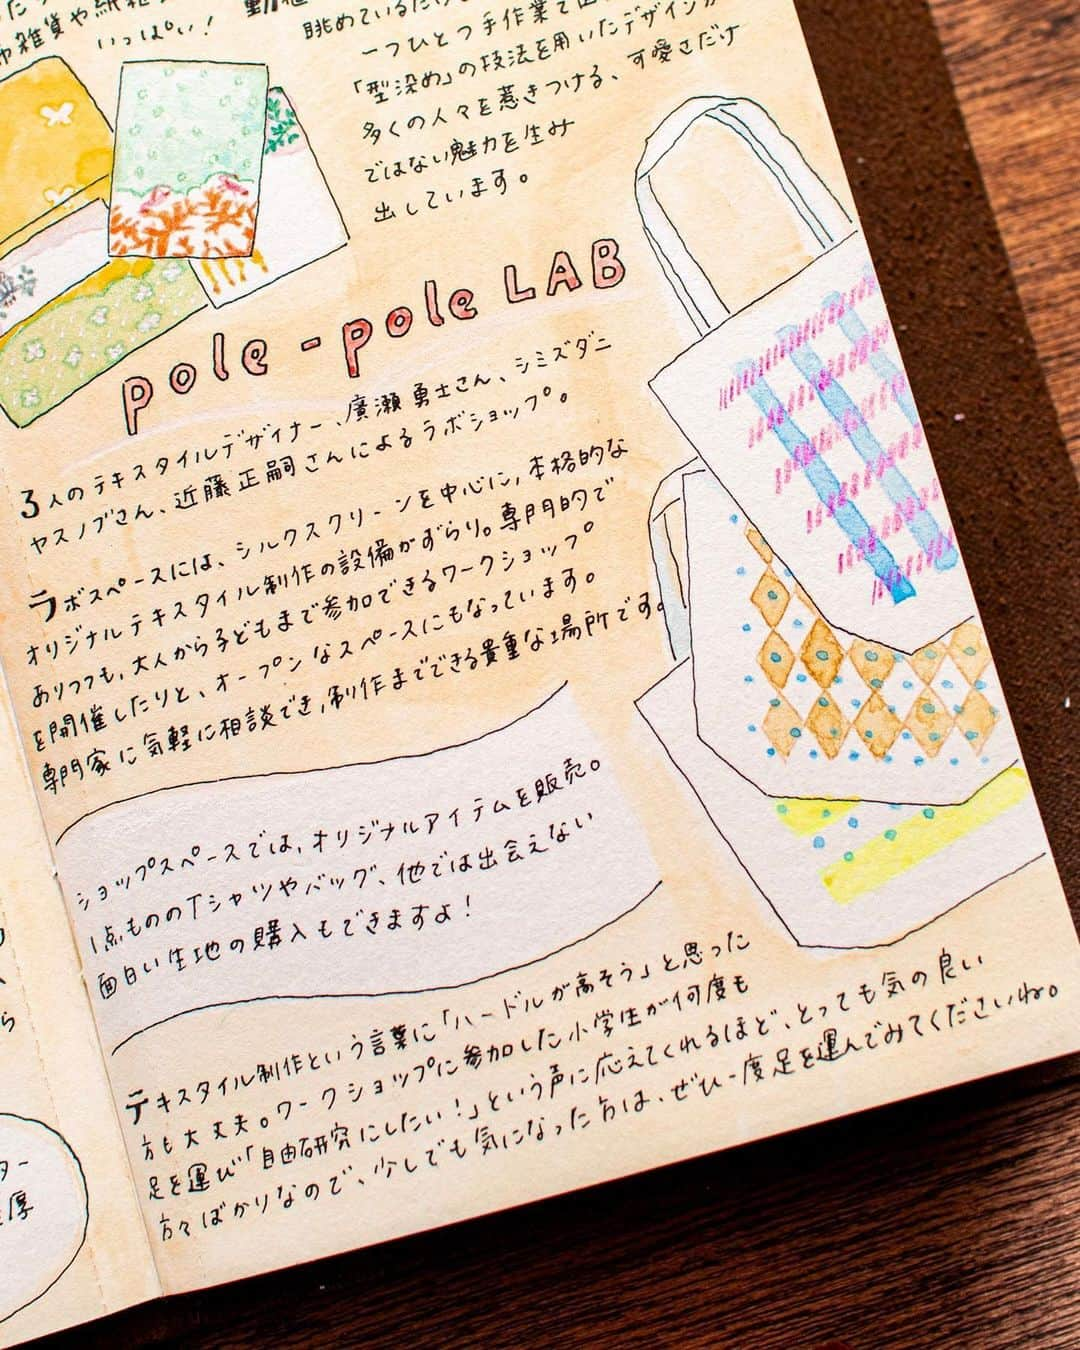 雑貨や紙雑
いっぱい!
眺めているだけ
一つひとつ手作業で
「型染め」の技法を用いたデザインが
多くの人々を惹きつける、可愛さだけ
ではない魅力を生み
出しています。
pole-pole LAB
3人のテキスタイルデザイナー、廣瀬勇士さん、シミズダニ
ヤスノブさん、近藤正嗣さんによるラボショップ。
ラボスペースには、シルクスクリーンを中心に、本格的な
オリジナルテキスタイル制作の設備がずらり。専門的で
ありつつも、大人から子どもまで参加できるワークショップ
を開催したりと、オープンなスペースにもなっています。
専門家に気軽に相談でき、制作までできる貴重な場所です。
ショップスペースでは、オリジナルアイテムを販売。
1点もののTシャツやバッグ、他では出会えない
面白い生地の購入もできますよ!
テキスタイル制作という言葉に「ハードルが高そう」と思った
方も大丈夫。ワークショップに参加した小学生が何度も
足を運び「自由研究にしたい!」という声に応えてくれるほど、とっても気の良い
方々ばかりなので、少しでも気になった方は、ぜひ一度足を運んでみてくださいね。
ら
ター
厚